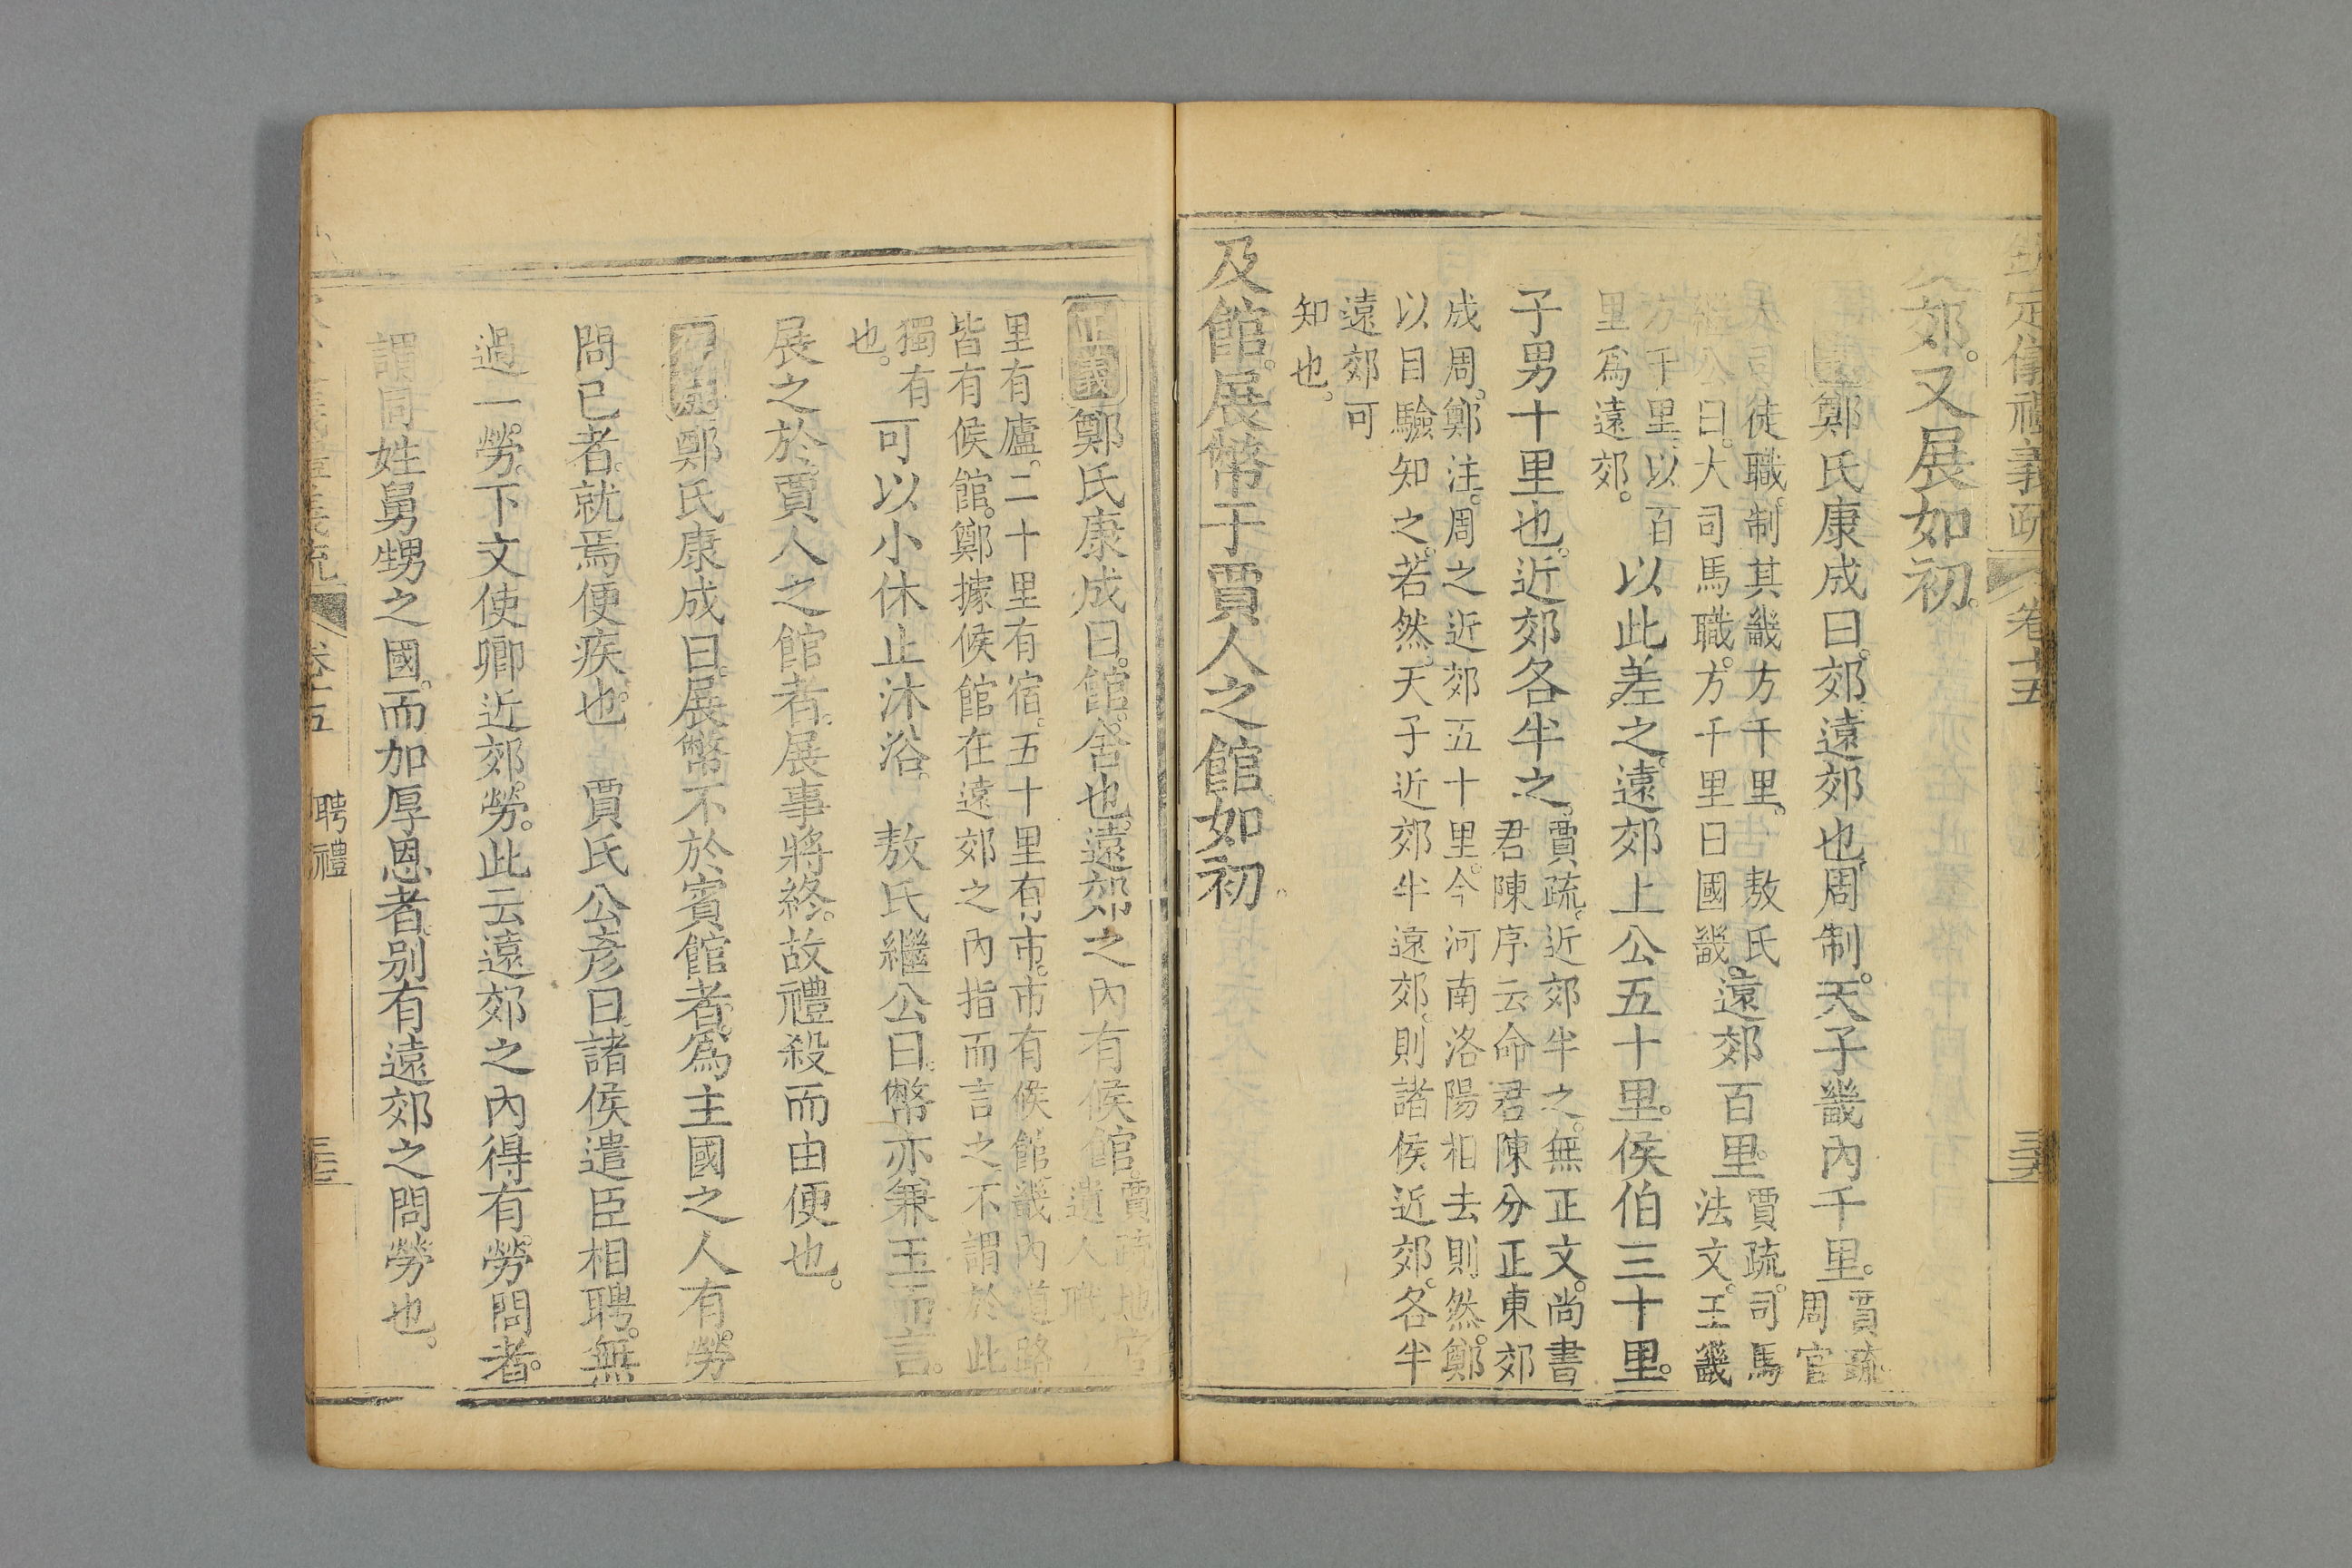 欽定儀禮義疏 卷十五
入郊又展如初
鄭氏康成曰郊遠郊也周制天子畿內千里賈疏
周官
大司徒職制其畿方千里敖氏
繼公曰大司馬職方千里曰國畿
遠郊百里
賈疏司馬
法文王畿
方千里以百
里爲遠郊
以此差之遠郊上公五十里侯伯三十里
子男十里也近郊各半之
賈疏近郊半之無正文尚書
君陳序云命君陳分正東郊
成周鄭注周之近郊五十里今河南洛陽相去則然鄭
以目驗知之若然天子近郊半遠郊則諸侯近郊各半
遠郊可
知也
及館展幣于賈人之館如初
正義鄭氏康成曰館舍也遠郊之內有候館
賈疏地官
遺人職十
里有廬二十里有宿五十里有市市有候館畿內道路
皆有候館鄭據候館在遠郊之內指而言之不謂於此
獨有
也
可以小休止沐浴 敖氏繼公曰幣亦兼玉而言
展之於賈人之館者展事將終故禮殺而由便也
鄭氏康成曰展幣不於賓館者爲主國之人有勞
問已者就焉便疾也 賈氏公彥曰諸侯遣臣相聘無
過一勞下文使卿近郊勞此云遠郊之內得有勞問者
謂同姓舅甥之國而加厚恩者別有遠郊之問勞也
卷十五 聘禮